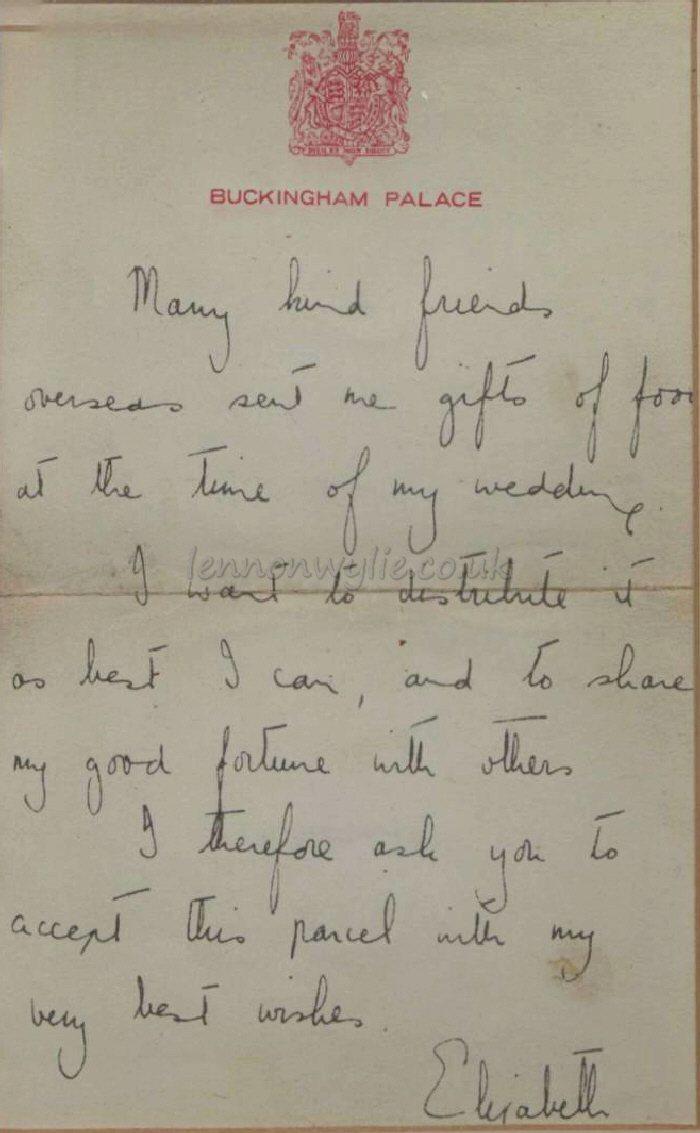 BUCKINGHAM PALACE
Many kind friends
overseas sent me gifts of foo
at the time of my wedding.
lennonwylie.co.uk
I want to distribute it
as best I can, and to share
my good fortune with others
I therefore ask you to
accept this parcel with my
very best wishes.
Elizabeth